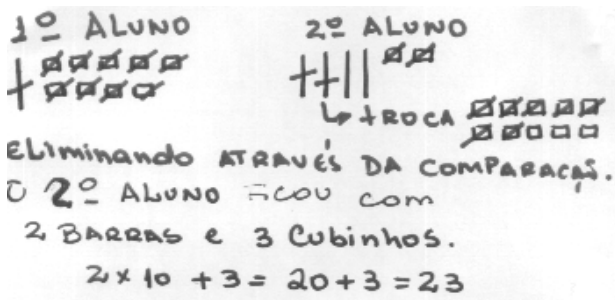 1º ALUNO 2º ALUNO
↳ TROCA
ELiminando ATRAVÉS DA COMPARAÇÃO.
O 2º ALUNO FICOU com
2 BARRAS e 3 Cubinhos.
2 x 10 + 3 = 20 + 3 = 23